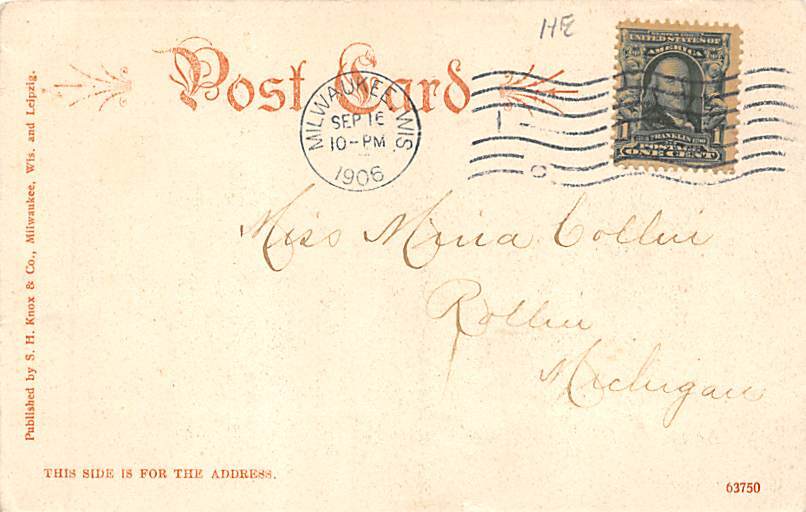 HE
Post Card
MILWAUKEE, WIS.
SEP 16
10-PM
1906
SERIES 1902
UNITED STATES OF
AMERICA
1 FRANKLIN 1
POSTAGE
ONE CENT
Miss Mina Collin
Rollin
Michigan
Published by S. H. Knox & Co., Milwaukee, Wis. and Leipzig.
THIS SIDE IS FOR THE ADDRESS.
63750